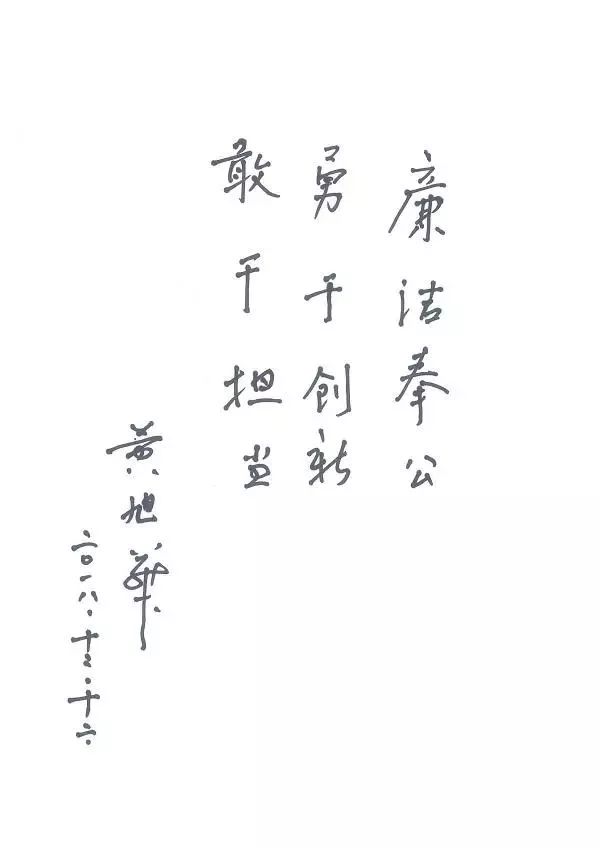 廉洁奉公
勇于创新
敢于担当
黄旭華
二〇一八.十二.十六